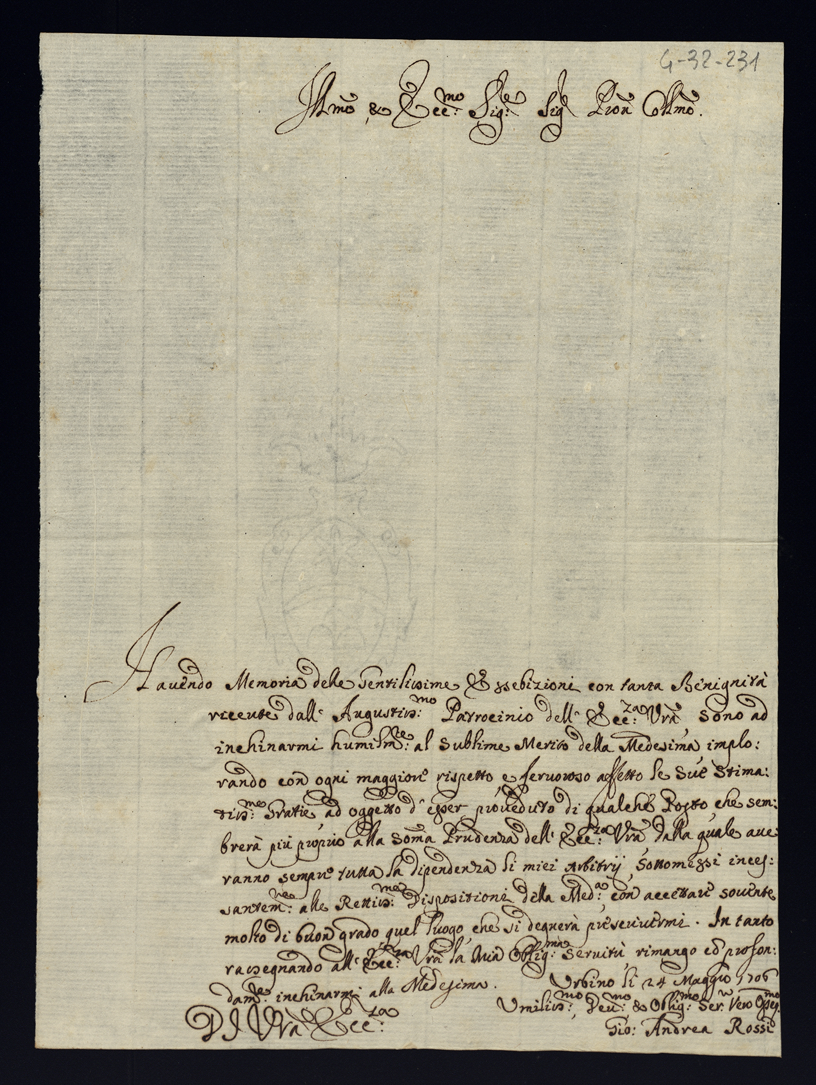 G-32-231
Ill:mo & Ecc:mo Sig:re Sig: Pron Coll:mo.
Havendo Memoria delle Gentilissime Essebizioni con tanta Benignità
riceute dall' Augustis:mo Patrocinio dell' Ecc:za Vrã sono ad
inchinarmi humilm:te al sublime Merito della Medesima implo:
rando con ogni maggior rispetto e feruoroso affetto le sue stima:
tis:me Gratie ad oggetto d' esser proueduto di qualche Posto che sem:
brerà più proprio alla somã Prudenza dell' Ecc:za Vrã dalla quale aue:
ranno sempre tutta la dipendenza li miei Arbitrij sottomessi inces:
santem:te alle Rettis:me Dispositioni della Med:a con accettare souente
molto di buon grado quel luogo che si degnerà prescriuermi. In tanto
rassegnando all' Ecc:za Vrã la mia Oblig:ma Seruitù rimango ed profon:
dam:te inchinarmi alla Medesima.
Urbino li 24 Maggio 1706
Di Vrã Ecc:za
Umilis:mo Deu:mo & Oblig:mo Ser: Vero
Gio: Andrea Rossi